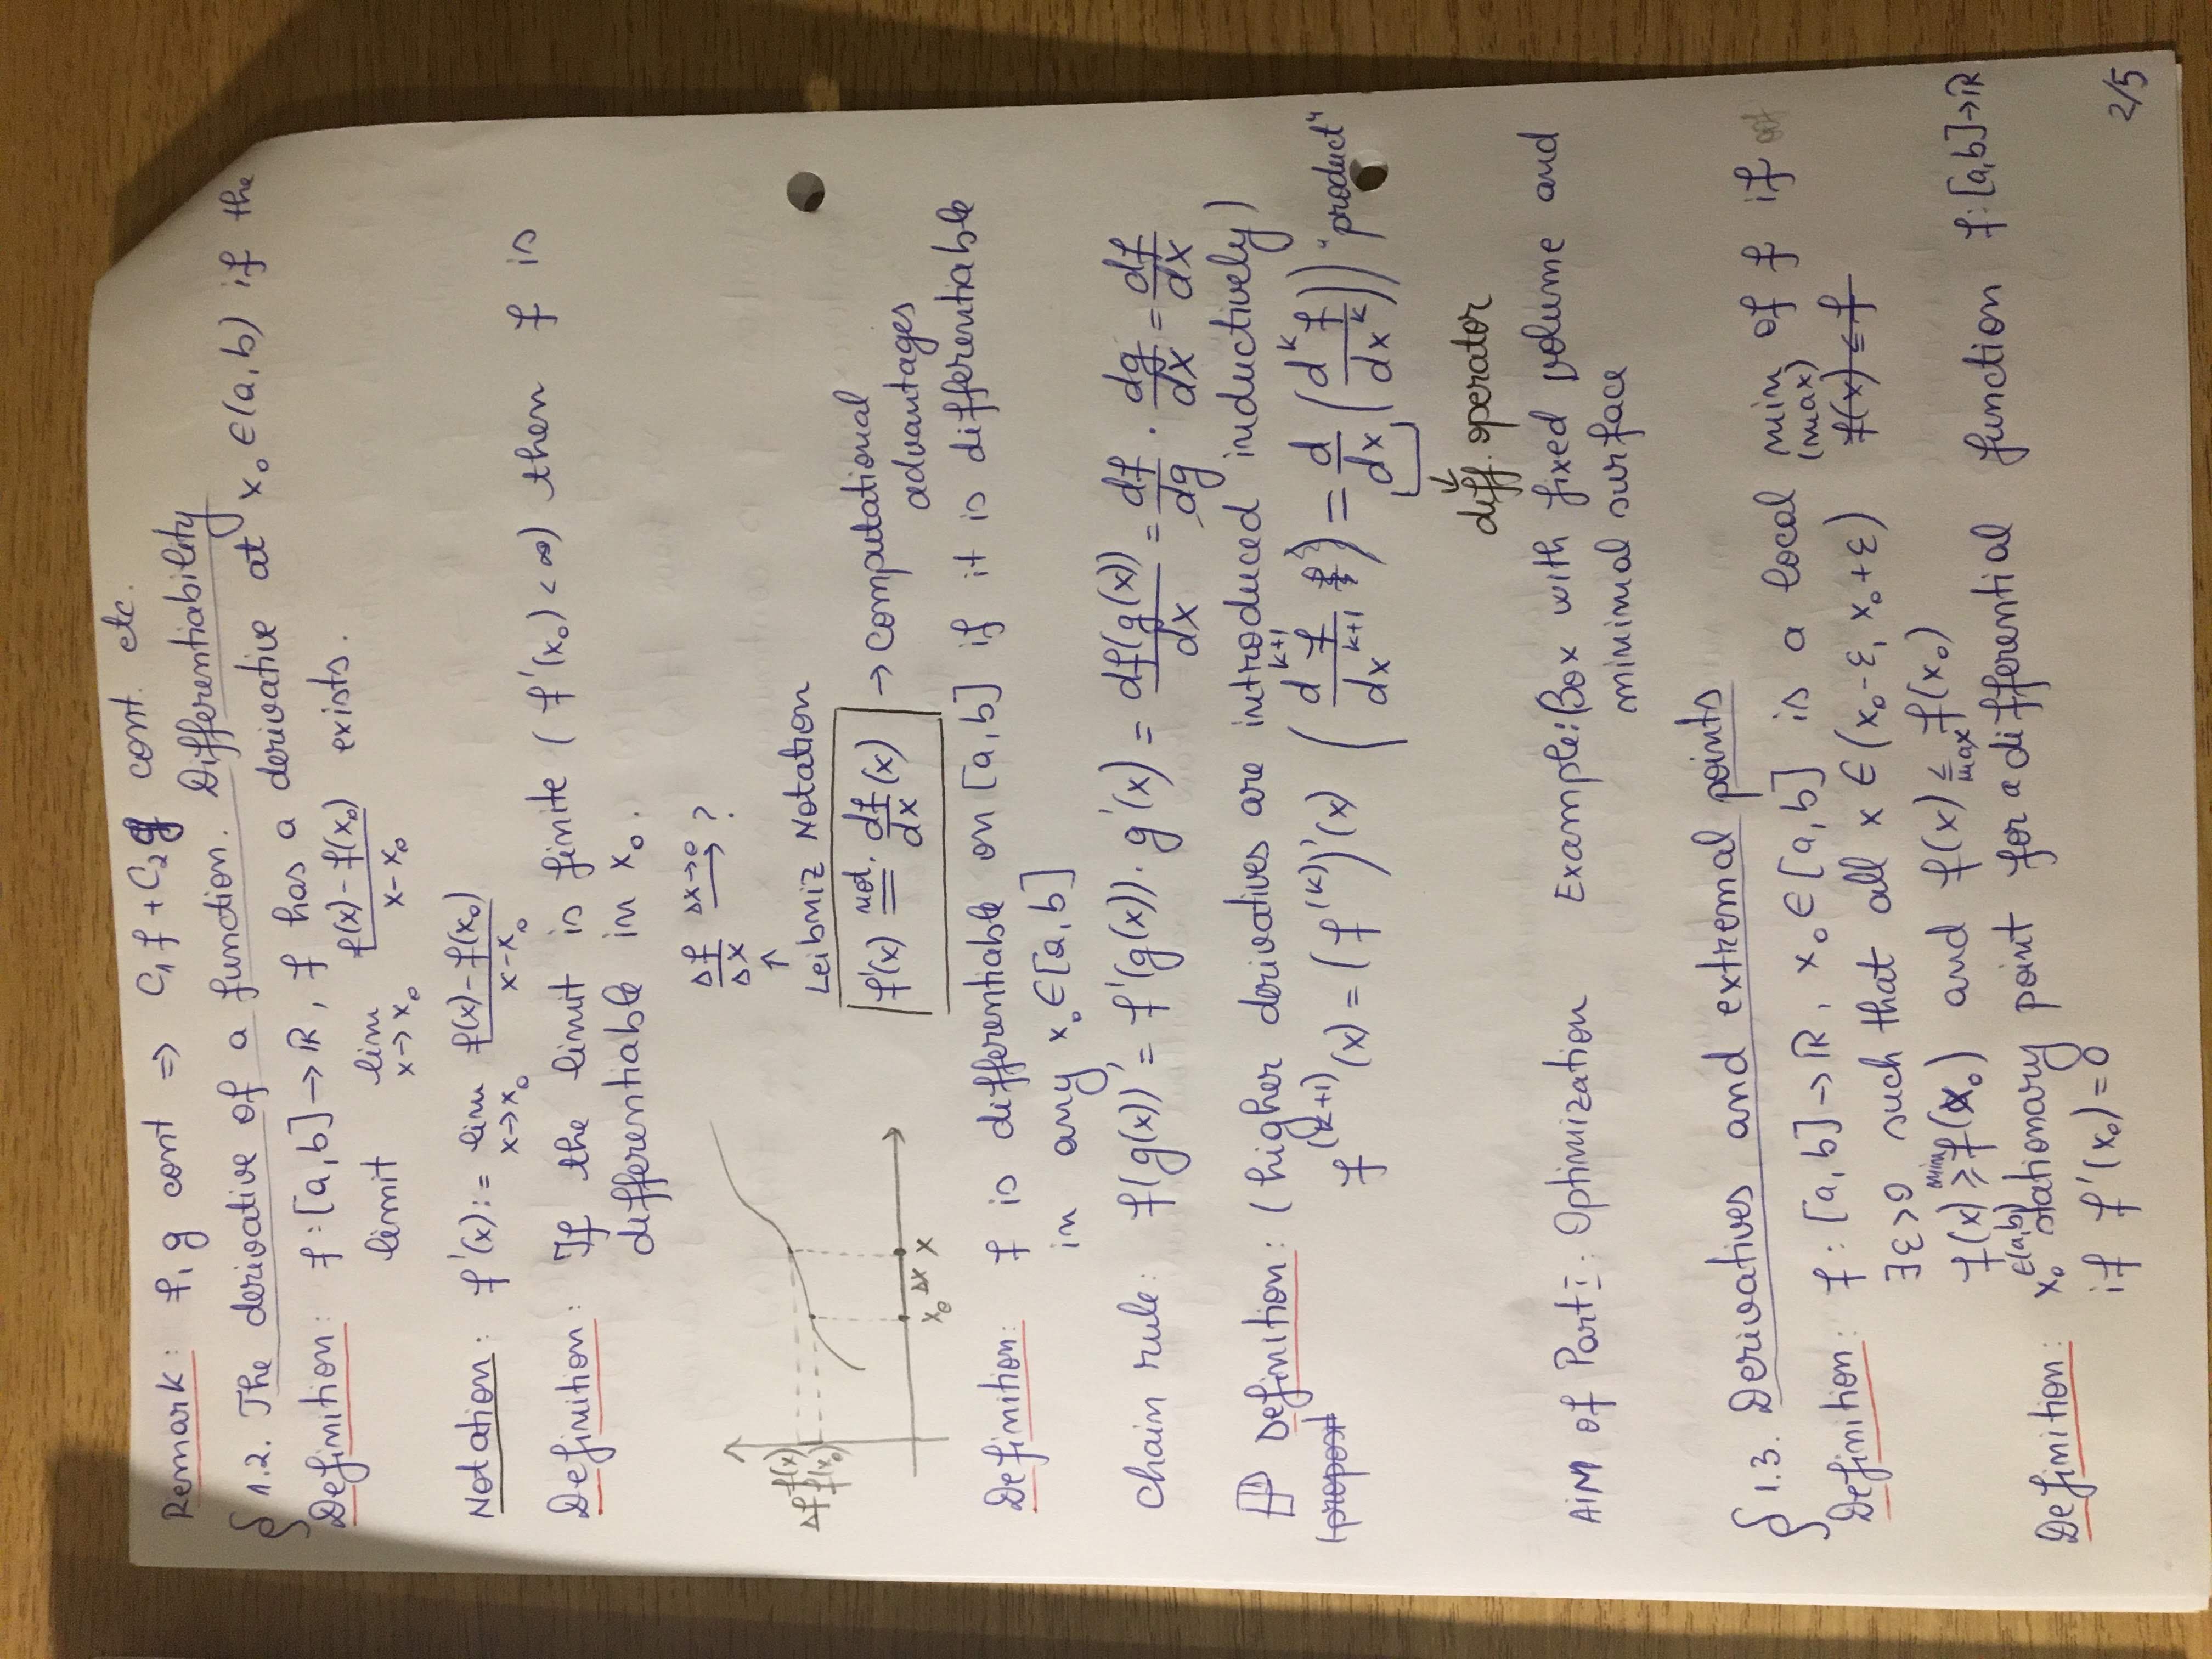 Remark: f, g cont ⇒ C₁f + C₂g cont. etc.
§ 1.2. The derivative of a function. Differentiability
Definition: f:[a,b]→ℝ, f has a derivative at x₀∈(a,b) if the
limit lim x→x₀ (f(x)-f(x₀))/(x-x₀) exists.
Notation: f'(x):= lim x→x₀ (f(x)-f(x₀))/(x-x₀)
Definition: If the limit is finite (f'(x₀)<∞) then f is
differentiable in x₀.
Δf/Δx Δx→0 ⟶ ?
↑
Leibniz Notation
Δf f(x) f(x₀)
x₀ Δx x
f'(x) not. = df/dx (x) → computational
advantages
Definition: f is differentiable on [a,b] if it is differentiable
in any x₀∈[a,b]
Chain rule: f(g(x))' = f'(g(x))·g'(x) = df(g(x))/dx = df/dg · dg/dx = df/dx
Definition: (higher derivatives are introduced inductively)
(propost
f⁽ᵏ⁺¹⁾(x) = (f⁽ᵏ⁾)'(x) (dᵏ⁺¹f/dxᵏ⁺¹ = d/dx (dᵏf/dxᵏ)) "product"
↓
diff. operator
Aim of Part I: Optimization Example: Box with fixed volume and
minimal surface
§ 1.3. Derivatives and extremal points
Definition: f:[a,b]→ℝ, x₀∈[a,b] is a local min (max) of f if
∃ε>0 such that all x∈(x₀-ε, x₀+ε) f(x)≤f
f(x) ≥ min f(x₀) and f(x) ≤ max f(x₀)
Definition: x₀ ∈(a,b) stationary point for a differential function f:[a,b]→ℝ
if f'(x₀)=0
2/5